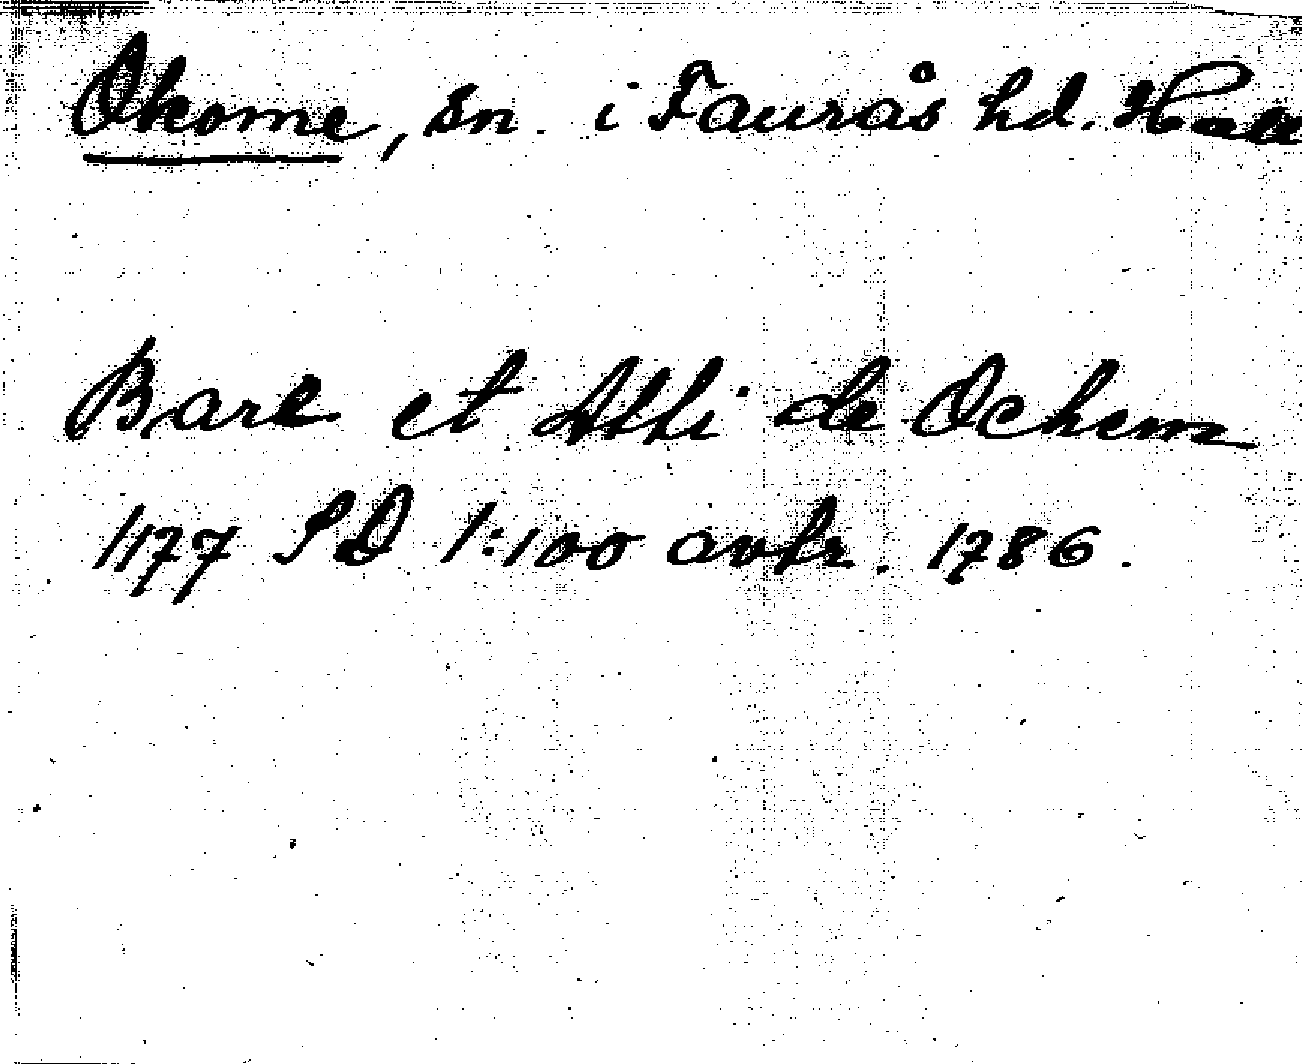 Okome, sn. i Faurås hd. Hall
Bare et Atti de Ochem
1177 SD 1:100 avkr. 1786.